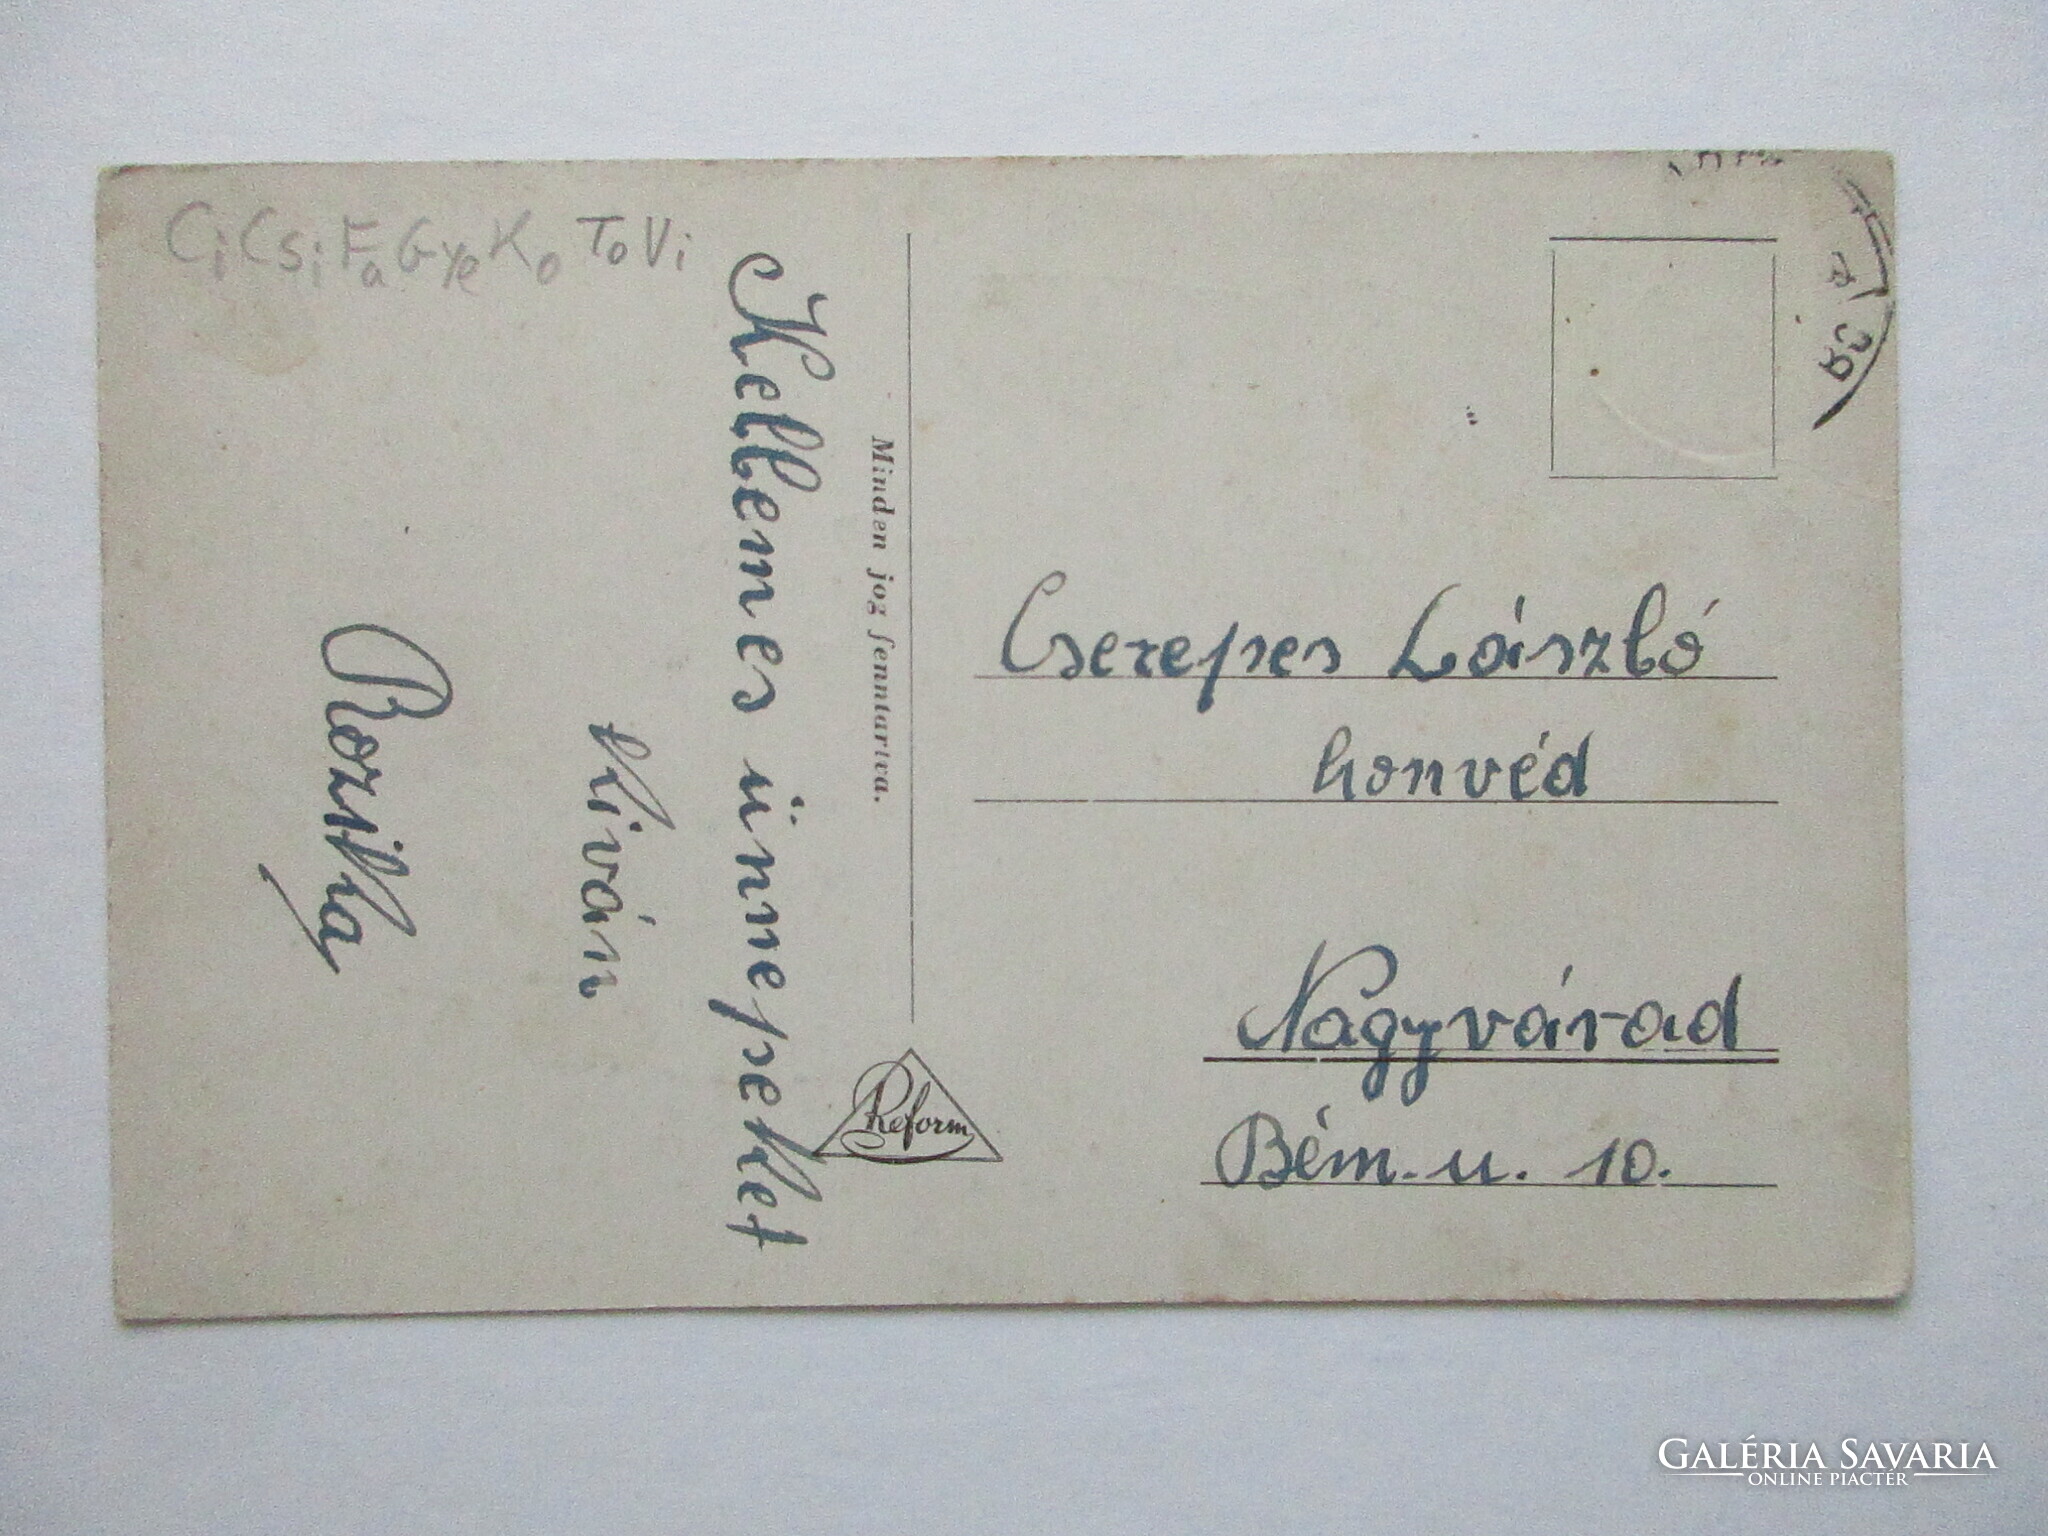 CiCsiFaGyeKoToVi
Kellemes ünnepeket
kiván
Rozika
Minden jog fenntartva.
Reform
Cserepes László
honvéd
Nagyvárad
Bém. u. 10.
GALÉRIA SAVARIA
ONLINE PIACTÉR